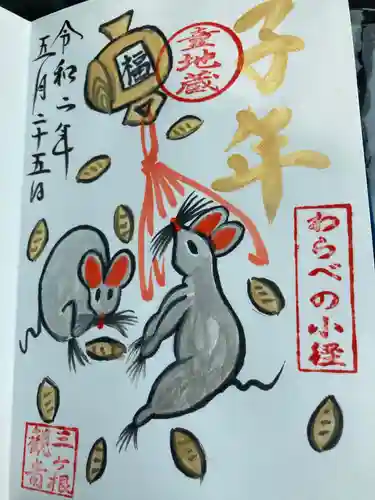 子年
童地蔵
福
わらべの小径
令和二年
五月二十五日
三ヶ根
観音